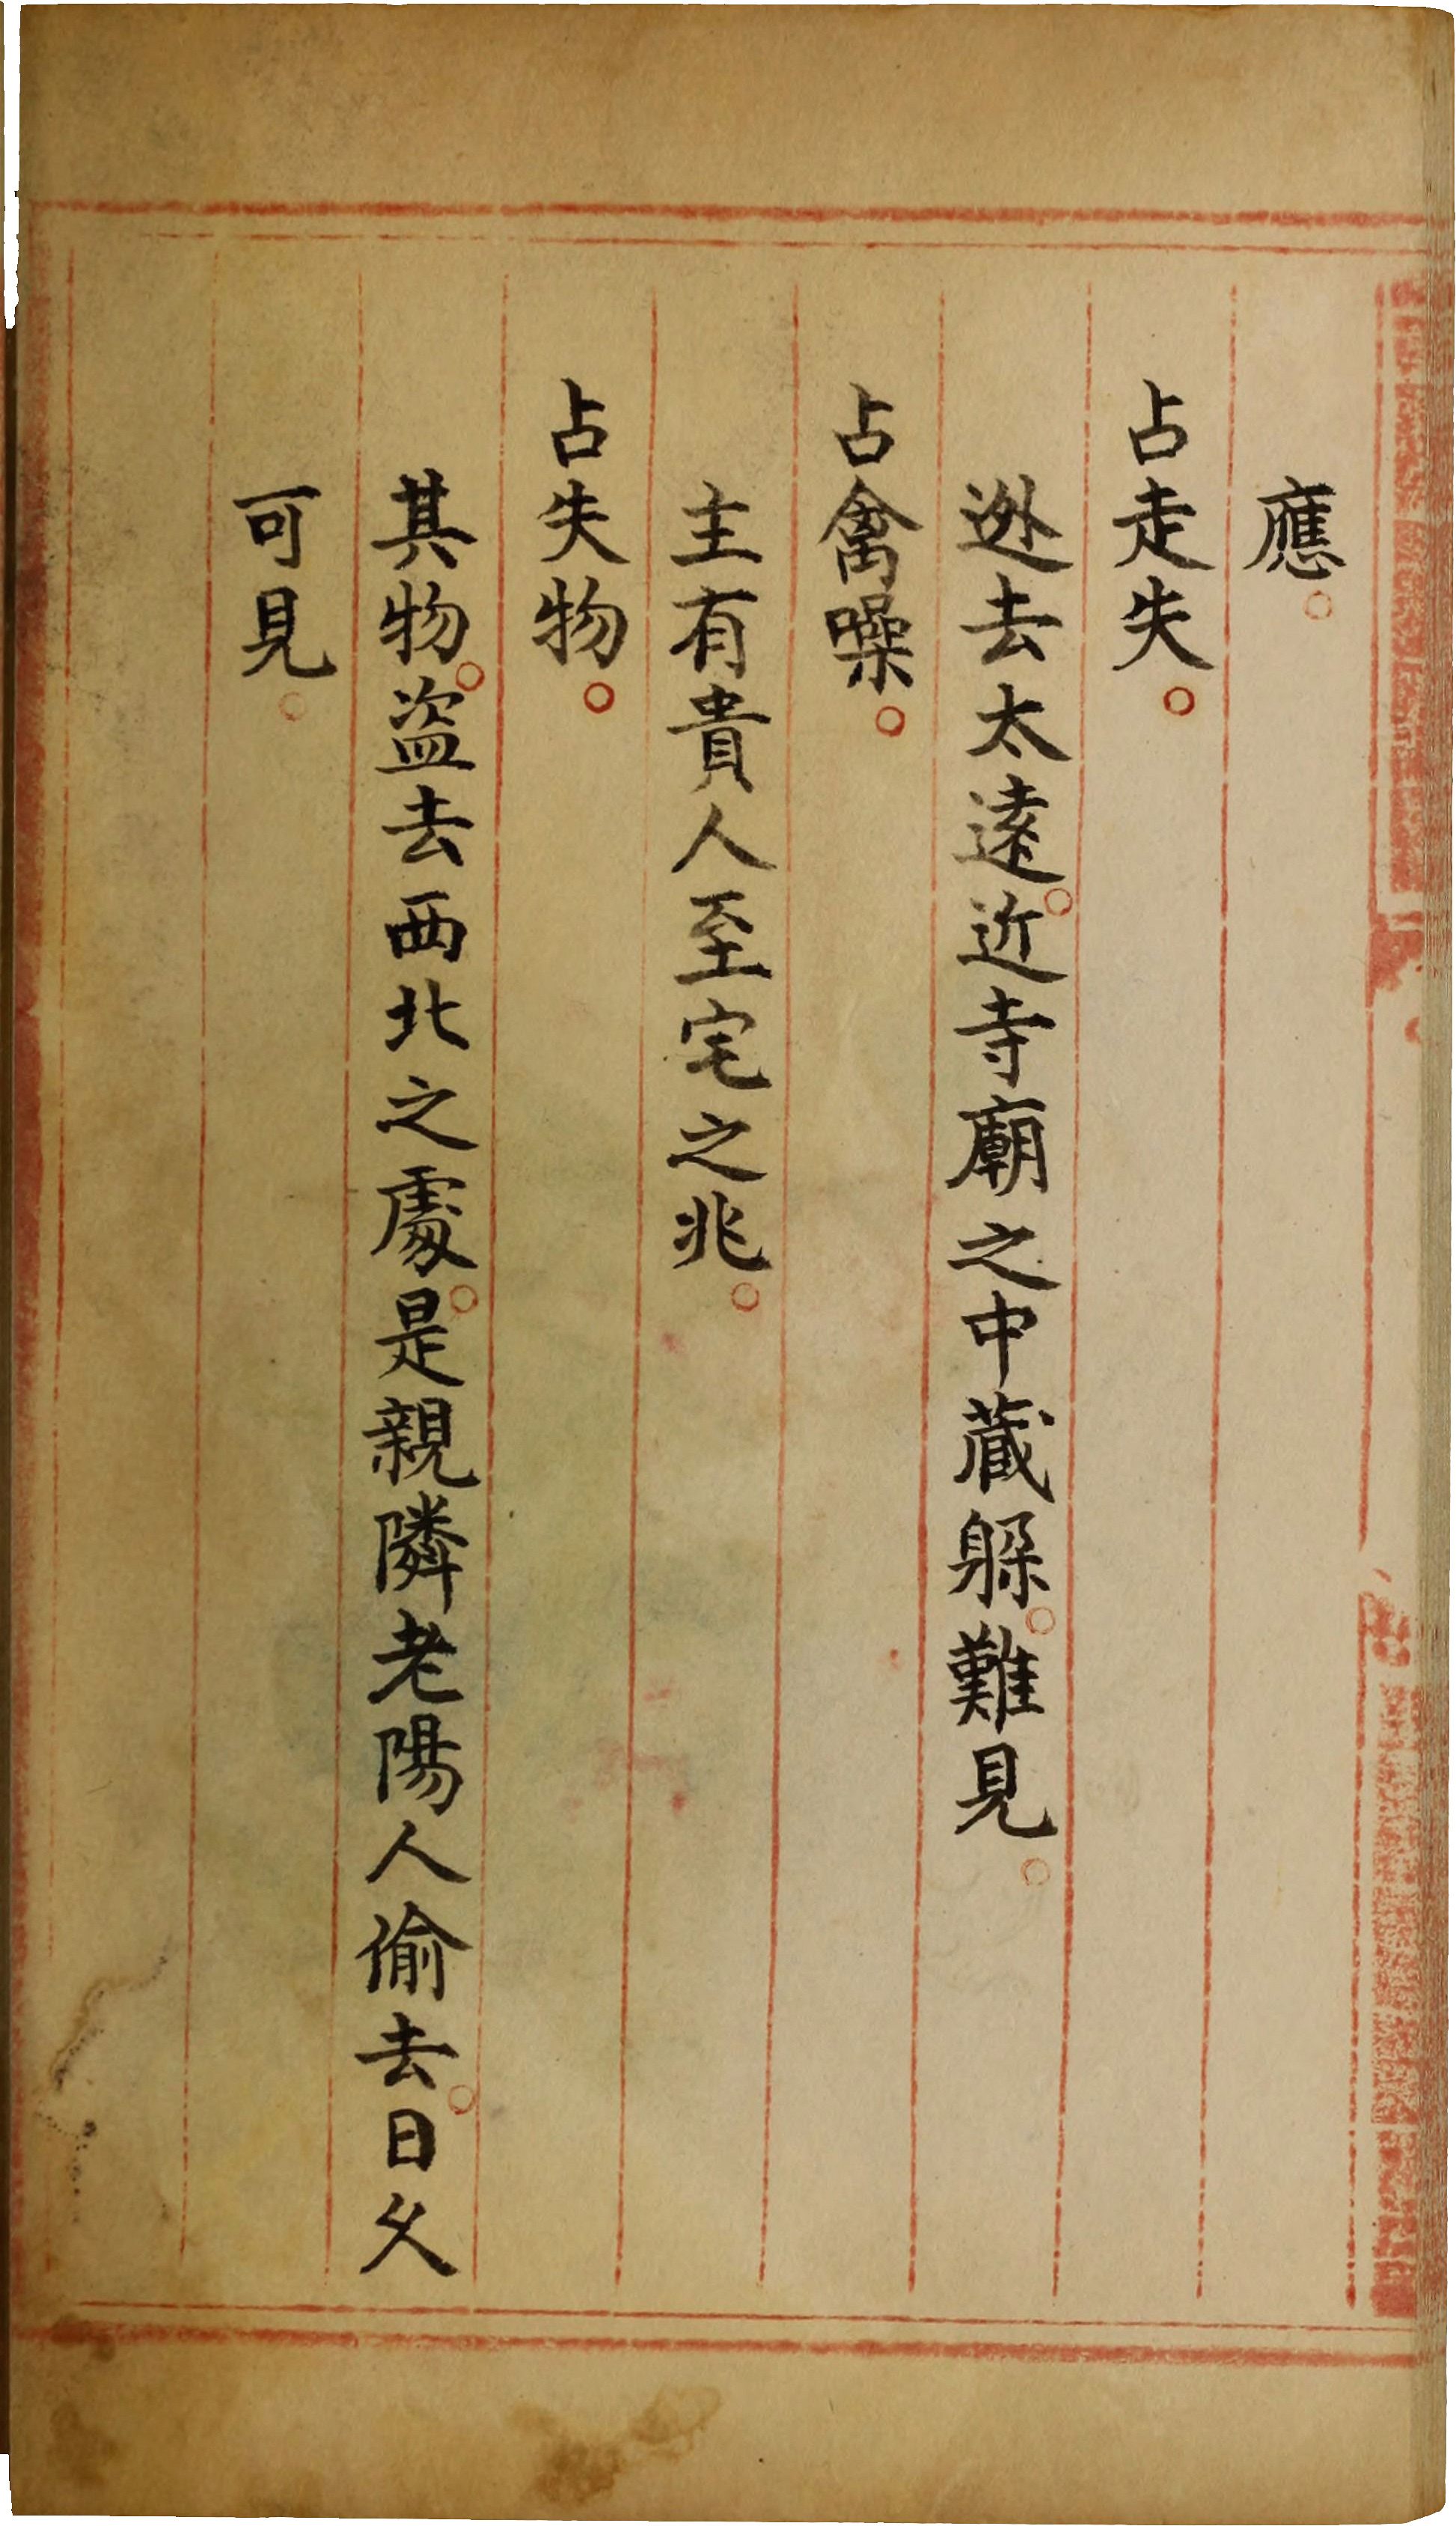 應。
占走失。
逃去太遠。近寺廟之中藏躲。難見。
占禽噪。
主有貴人至宅之兆。
占失物。
其物。盜去西北之處。是親隣老陽人偷去。日久
可見。